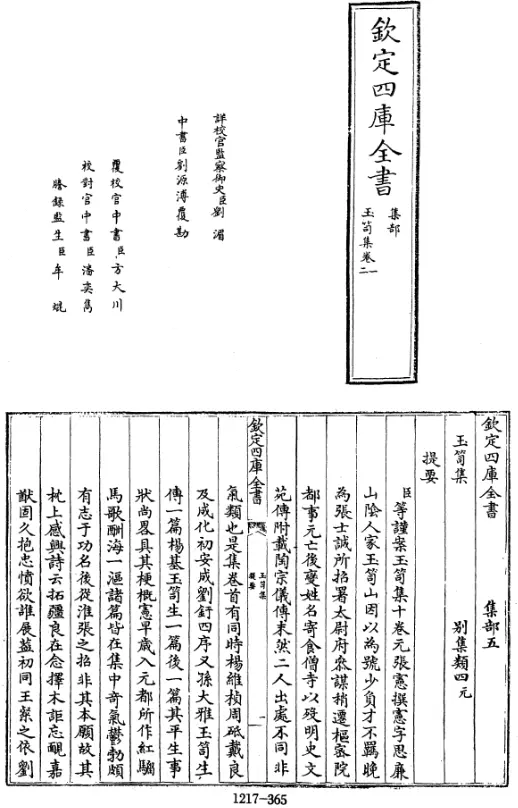 欽定四庫全書
集部
玉笥集卷一二
詳校官監察御史臣劉湄
中書臣劉源溥覆勘
覆校官中書臣方大川
校對官中書臣潘奕雋
謄錄監生臣牟焜
欽定四庫全書 集部五
玉笥集 別集類四元
提要
臣等謹案玉笥集十卷元張憲撰憲字思廉
山陰人家玉笥山因以為號少負才不羈晚
為張士誠所招署太尉府參謀稍遷樞密院
都事元亡後變姓名寄食僧寺以歿明史文
苑傳附載陶宗儀傳末然二人出處不同非
欽定四庫全書 玉笥集 提要 一
氣類也是集卷首有同時楊維楨周砥戴良
及成化初安成劉釪四序又孫大雅玉笥生
傳一篇楊基玉笥生一篇後一篇其平生事
狀尚畧具其梗概憲早歲入元都所作紅騮
馬歌酬海一漚諸篇皆在集中奇氣鬱勃頗
有志于功名後從淮張之招非其本願故其
枕上感興詩云拓疆良在念擇木詎忘覸嘉
猷固久抱忠憤欲誰展蓋初同王粲之依劉
1217-365